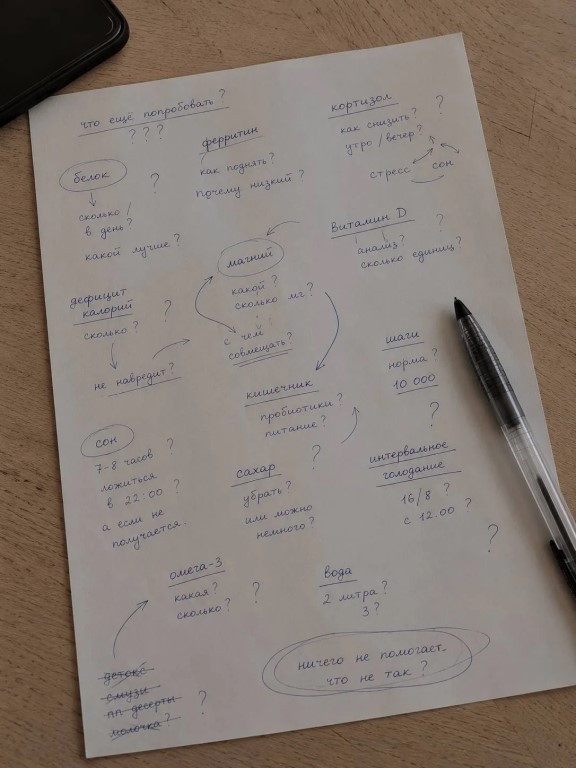 что ещё попробовать?
? ? ?
белок
?
сколько /
в день?
какой лучше?
ферритин
?
как поднять?
почему низкий?
кортизол
?
как снизить?
утро / вечер?
стресс
сон
дефицит
калорий
сколько?
?
не навредит?
магний
какой?
сколько мг?
с чем
совмещать?
Витамин D
?
анализ?
сколько единиц?
кишечник
пробиотики?
питание?
?
шаги
норма?
10 000
?
сон
7-8 часов
?
ложиться
в 22:00
?
а если не
получается.
сахар
убрать?
или можно
немного?
интервальное
голодание
16/8 ?
с 12.00 ?
?
омега-3
какая?
сколько?
?
вода
2 литра?
3?
детокс
смузи
пп десерты
молочка?
?
ничего не помогает.
что не так?